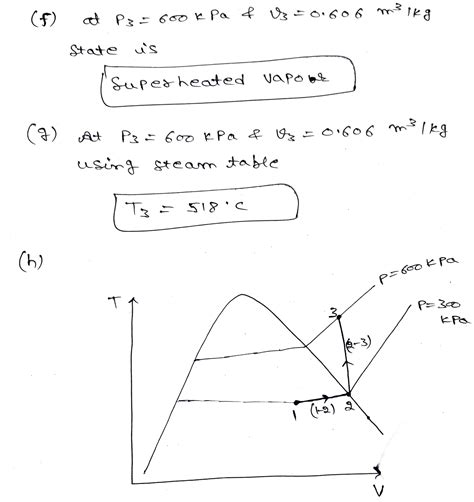 (f) at P3 = 600 kPa & v3 = 0.606 m³/kg
state is
Superheated vapour
(g) At P3 = 600 kPa & v3 = 0.606 m³/kg
using steam table
T3 = 518°C
(h)
P=600 kPa
T
P=300
kPa
3
(2-3)
1
(1-2)
2
V